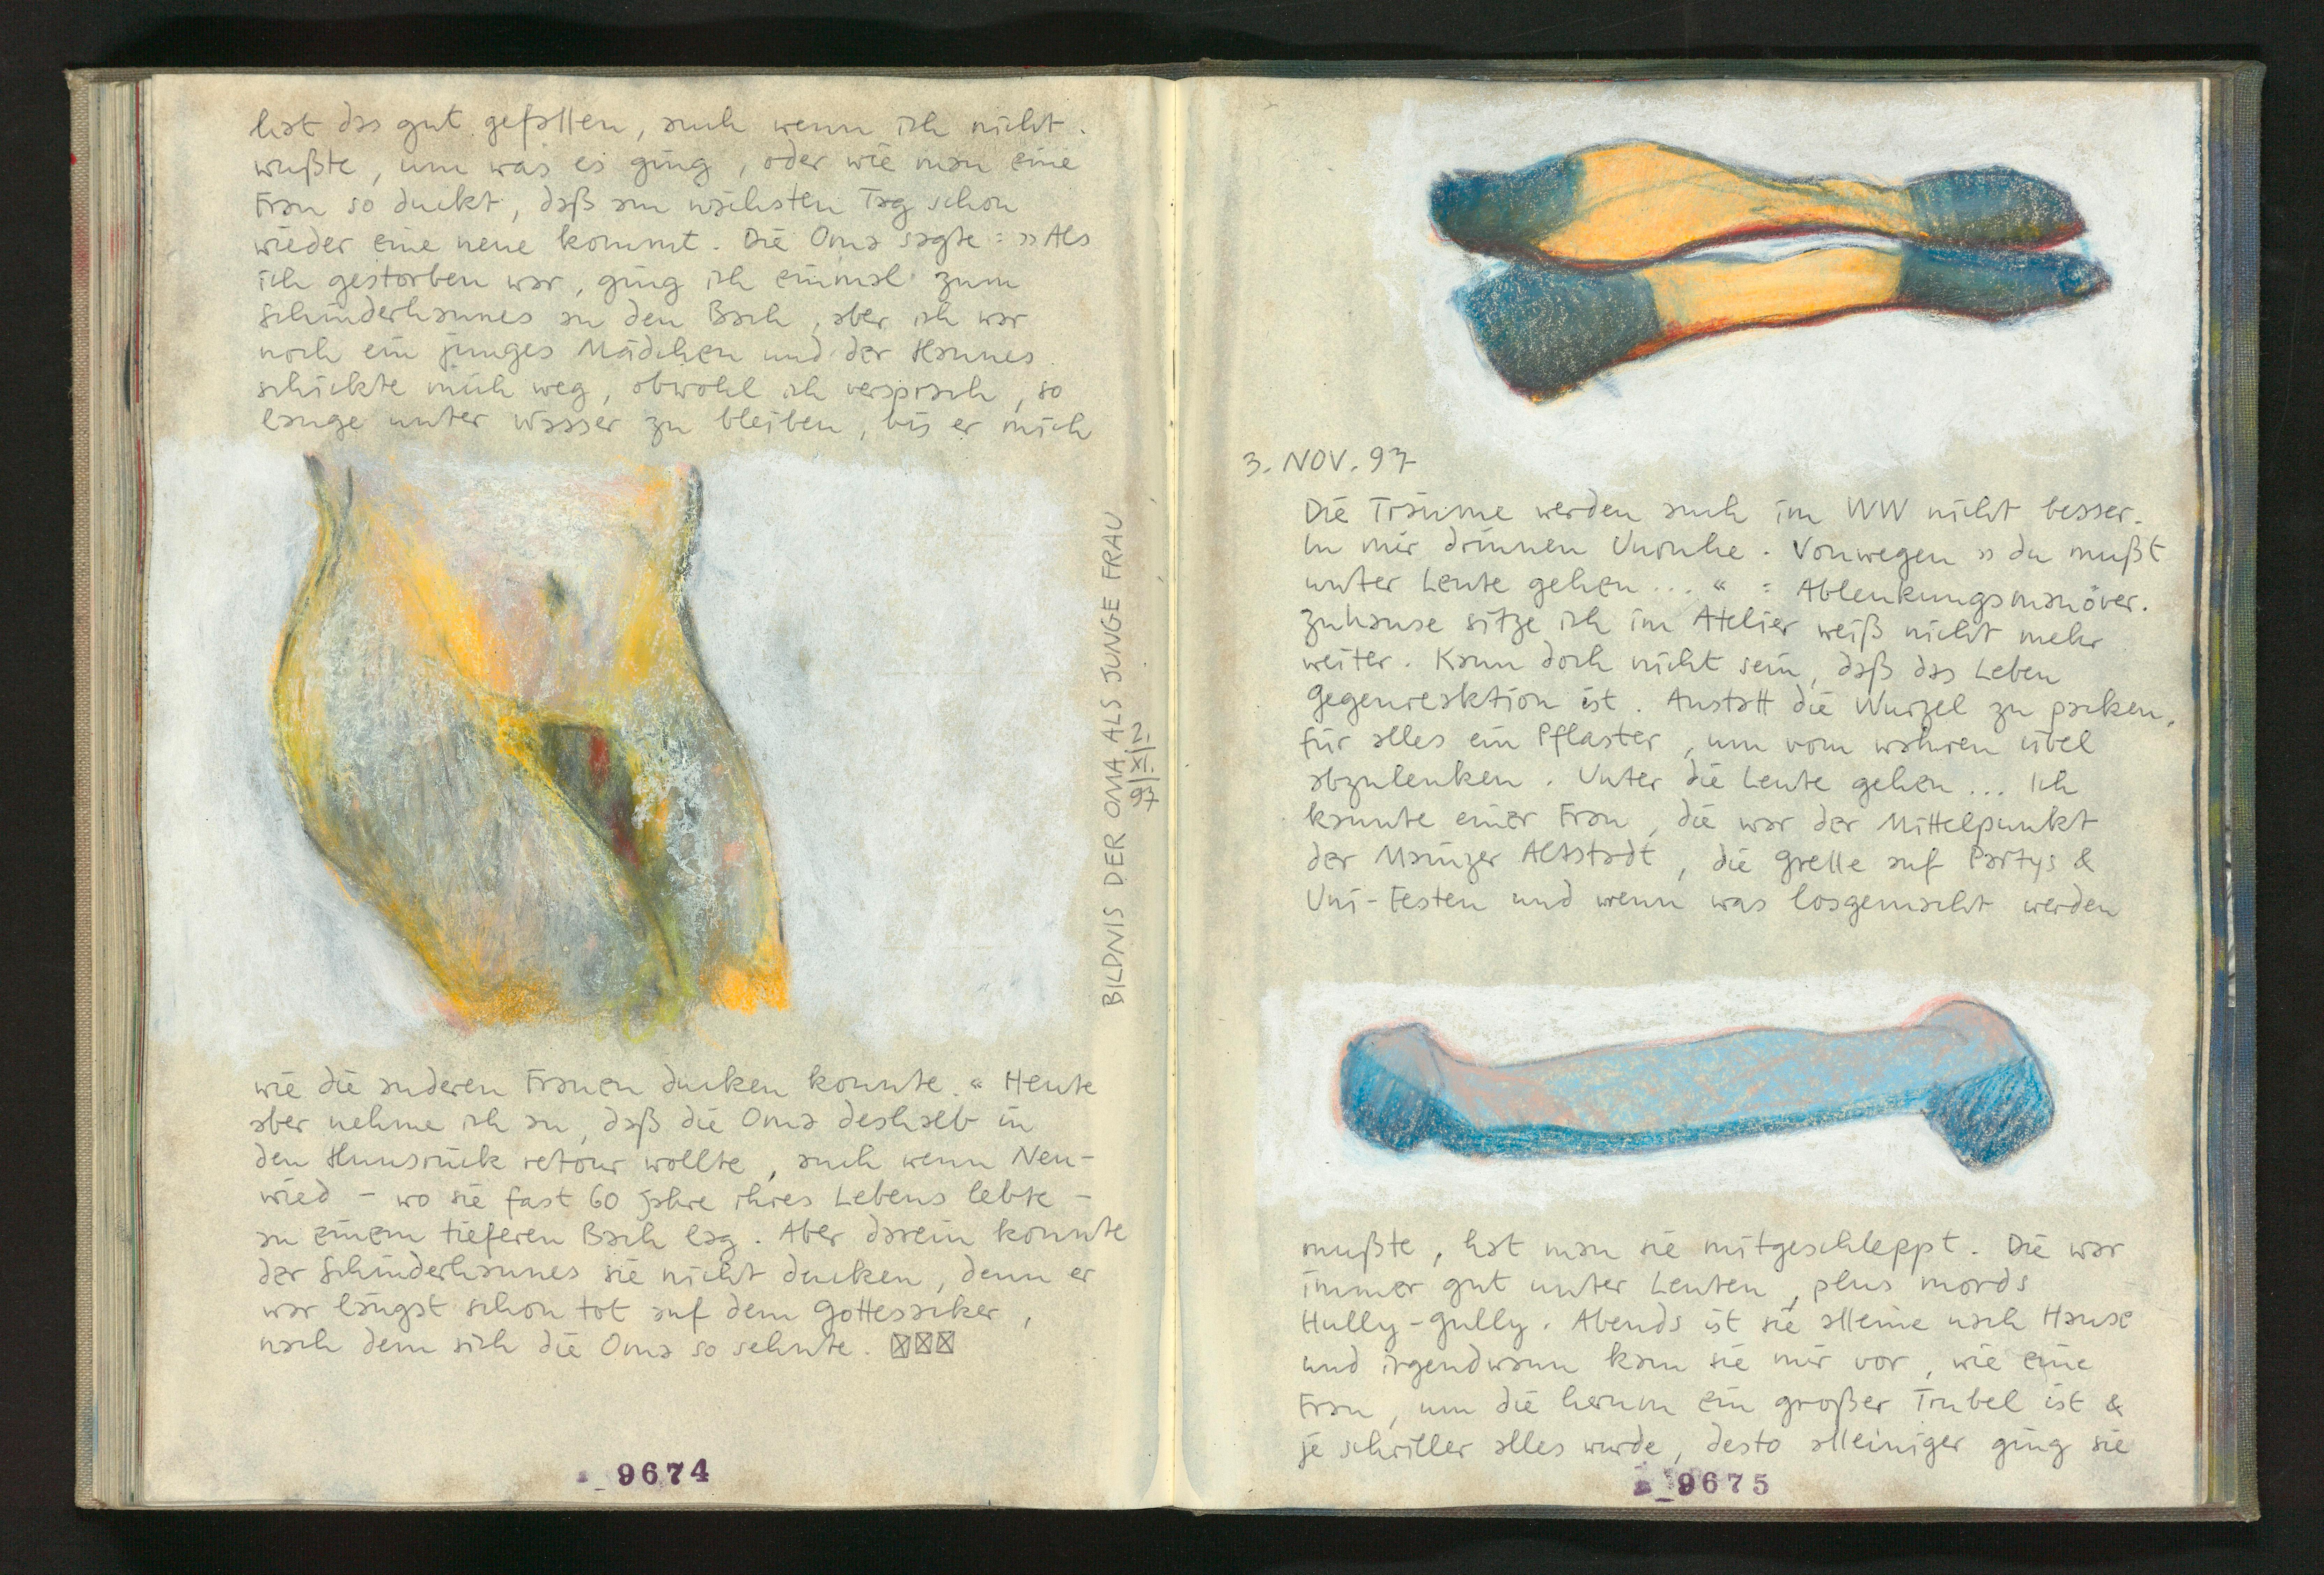 hat das gut gefallen, auch wenn ich nicht
wußte, um was es ging, oder wie man eine
Frau so duckt, daß am nächsten Tag schon
wieder eine neue kommt. Die Oma sagte: »Als
ich gestorben war, ging ich einmal zum
Schinderhannes an den Bach, aber ich war
noch ein junges Mädchen und der Hannes
schickte mich weg, obwohl ich versprach, so
lange unter Wasser zu bleiben, bis er mich
BILDNIS DER OMA ALS JUNGE FRAU
2.|XI.|97
wie die anderen Frauen ducken konnte.« Heute
aber nehme ich an, daß die Oma deshalb in
den Hunsrück retour wollte, auch wenn Neu-
wied – wo sie fast 60 Jahre ihres Lebens lebte –
an einem tieferen Bach lag. Aber darein konnte
der Schinderhannes sie nicht ducken, denn er
war längst schon tot auf dem Gottesacker,
nach dem sich die Oma so sehnte. ☒☒☒
9674
3. NOV. 97
Die Träume werden auch im WW nicht besser.
In mir drinnen Unruhe. Vonwegen »du mußt
unter Leute gehen...« : Ablenkungsmanöver.
Zuhause sitze ich im Atelier weiß nicht mehr
weiter. Kann doch nicht sein, daß das Leben
Gegenreaktion ist. Anstatt die Wurzel zu packen,
für alles ein Pflaster, um vom wahren Übel
abzulenken. Unter die Leute gehen... Ich
kannte einer Frau, die war der Mittelpunkt
der Mainzer Altstadt, die Grelle auf Partys &
Uni-Festen und wenn was losgemacht werden
mußte, hat man sie mitgeschleppt. Die war
immer gut unter Leuten, plus mords
Hully-Gully. Abends ist sie alleine nach Hause
und irgendwann kam sie mir vor, wie eine
Frau, um die herum ein großer Trubel ist &
je schriller alles wurde, desto alleiniger ging sie
9675